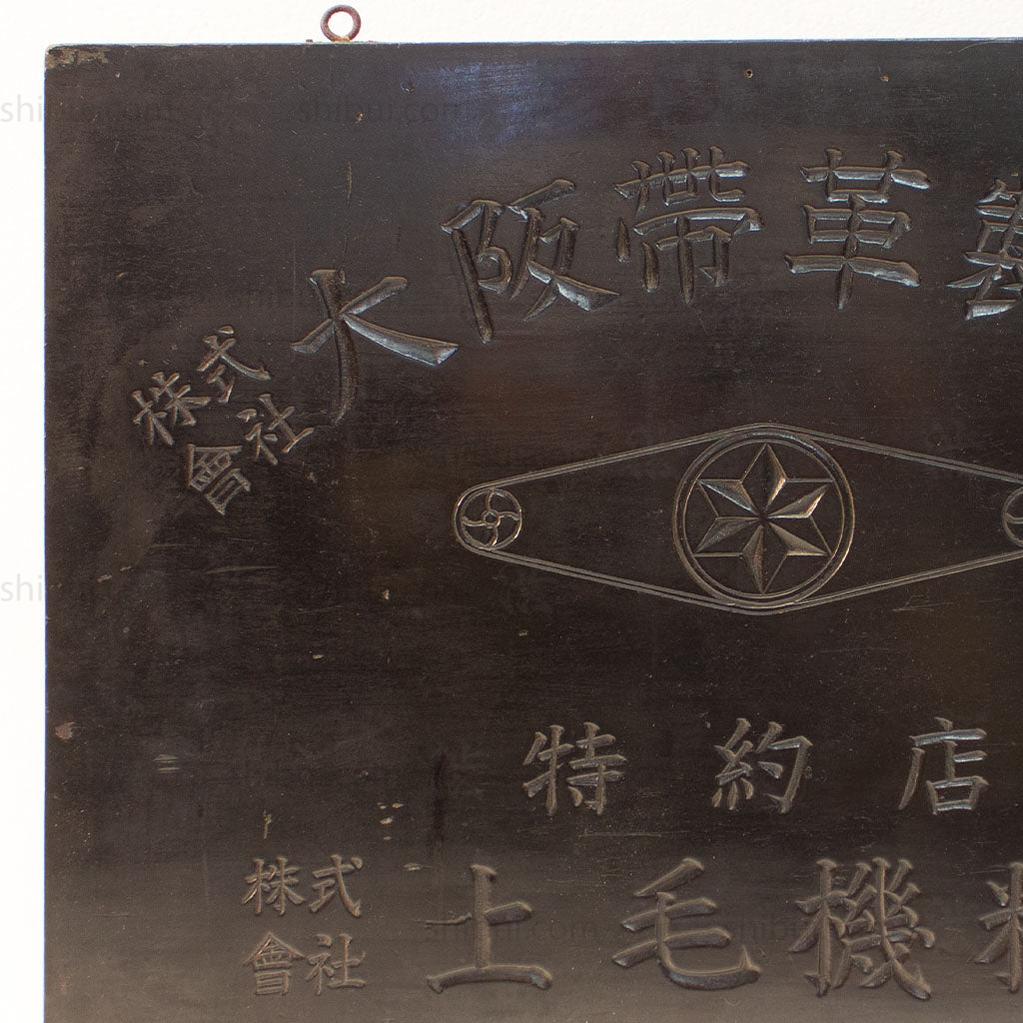 株式
會社
大阪帶革製
特約店
株式
會社
上毛機料
shibui.com